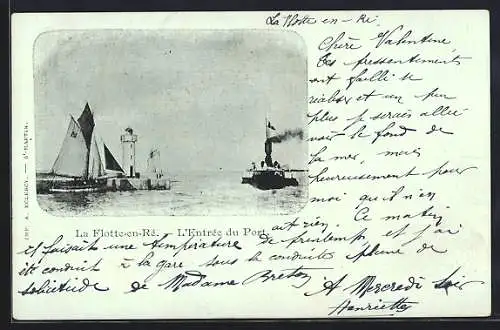 La Flotte-en-Ré
Chère Valentine,
tes pressentiments
ont failli se
réaliser et un peu
plus je serais allée
voir le fond de
la mer, mais
heureusement pour
moi qu'il n'en
ait rien. Ce matin
il faisait une température de printemps et j'ai
été conduit à la gare sous la conduite pleine de
sollicitude de Madame Breton. A Mercredi soir
Henriette
La Flotte-en-Ré. — L'Entrée du Port.
IMP. A. LECLERCH. — St MARTIN.